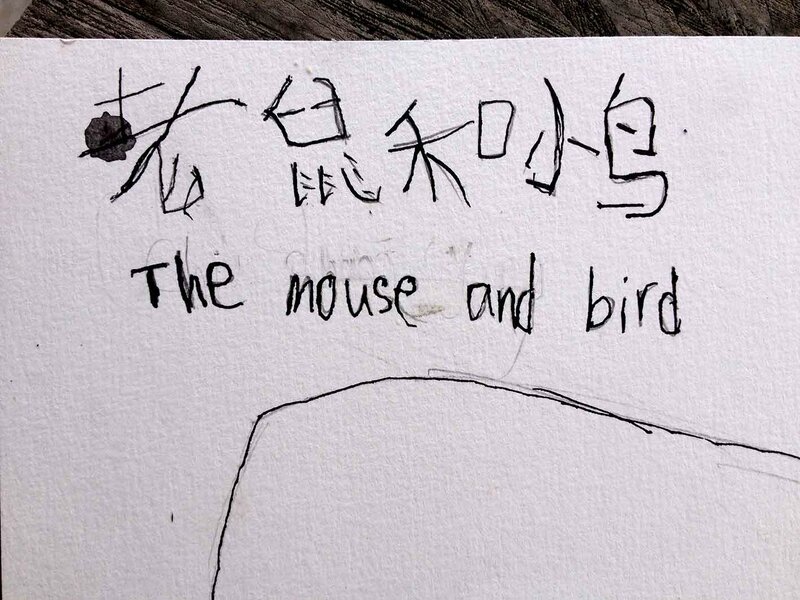 老鼠和小鸟
The mouse and bird